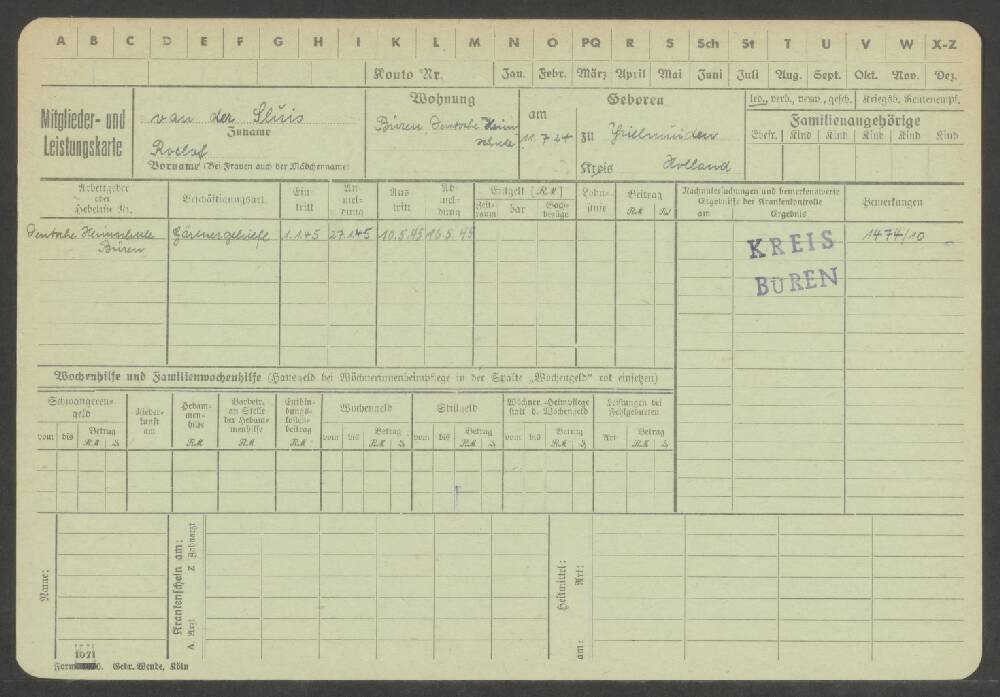 A B C D E F G H I K L M N O PQ R S Sch St T U V W X-Z
Konto Nr. Jan. Febr. März April Mai Juni Juli Aug. Sept. Okt. Nov. Dez.
Mitglieder- und
Leistungskarte
van der Sluis
Zuname
Roelof
Vorname (Bei Frauen auch der Mädchenname)
Wohnung
Büren Deutsche Heim
schule
Geboren
am
11.7.24
zu
Kreis Holland
led., verh., verw., gesch. Kriegsb. Rentenempf.
Familienangehörige
Ehefr. Kind Kind Kind Kind Kind
Arbeitgeber
oder
Hebeliste Nr.
Beschäftigungsart
Ein-
tritt
An-
mel-
dung
Aus-
tritt
Ab-
mel-
dung
Entgelt [RM]
Zeit-
raum
bar
Sach-
bezüge
Lohn-
stufe
Beitrag
RM Rpf
Nachuntersuchungen und bemerkenswerte
Ergebnisse der Krankenkontrolle
am Ergebnis
Bemerkungen
Deutsche Heimschule
Büren
Gärtnergehilfe 1.1.45 27.1.45 10.5.45 10.5.45
KREIS
BÜREN
1474/10
Wochenhilfe und Familienwochenhilfe (Hausgeld bei Wöchnerinnenheimpflege in der Spalte „Wochengeld" rot einsetzen)
Schwangeren-
geld
vom bis Betrag
RM
Nieder-
kunft
am
Hebam-
men-
hilfe
RM
Barbetr.
an Stelle
der Hebam-
menhilfe
RM
Entbin-
dungs-
kosten-
beitrag
RM
Wochengeld
vom bis Betrag
RM
Stillgeld
vom bis Betrag
RM
Wöchner.-Heimpflege
statt d. Wochengeld
vom bis Betrag
RM
Leistungen bei
Fehlgeburten
Art Betrag
RM
Name:
Krankenschein am:
A Arzt Z Zahnarzt
Heilmittel:
am: Art:
1671
Gebr. Wende, Köln